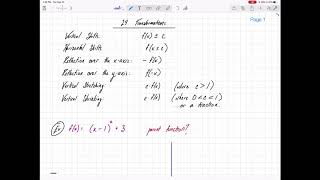 Page 1
2.4 Transformations
Vertical Shift: f(x) ± c
Horizontal Shift: f(x ± c)
Reflection over the x-axis: - f(x)
Reflection over the y-axis: f(-x)
Vertical Stretching: c · f(x) (where c > 1)
Vertical Shrinking: c · f(x) (where 0 < c < 1)
or a fraction
Ex f(x) = (x - 1)² + 3 parent function?